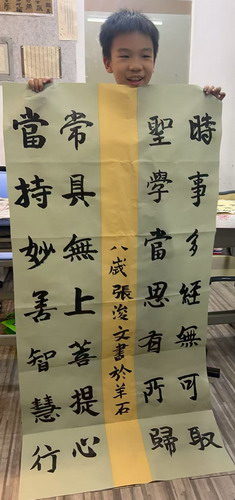 時事多經無可取
聖學當思有所歸
八歲張浚文書於羊石
常具無上菩提心
當持妙善智慧行